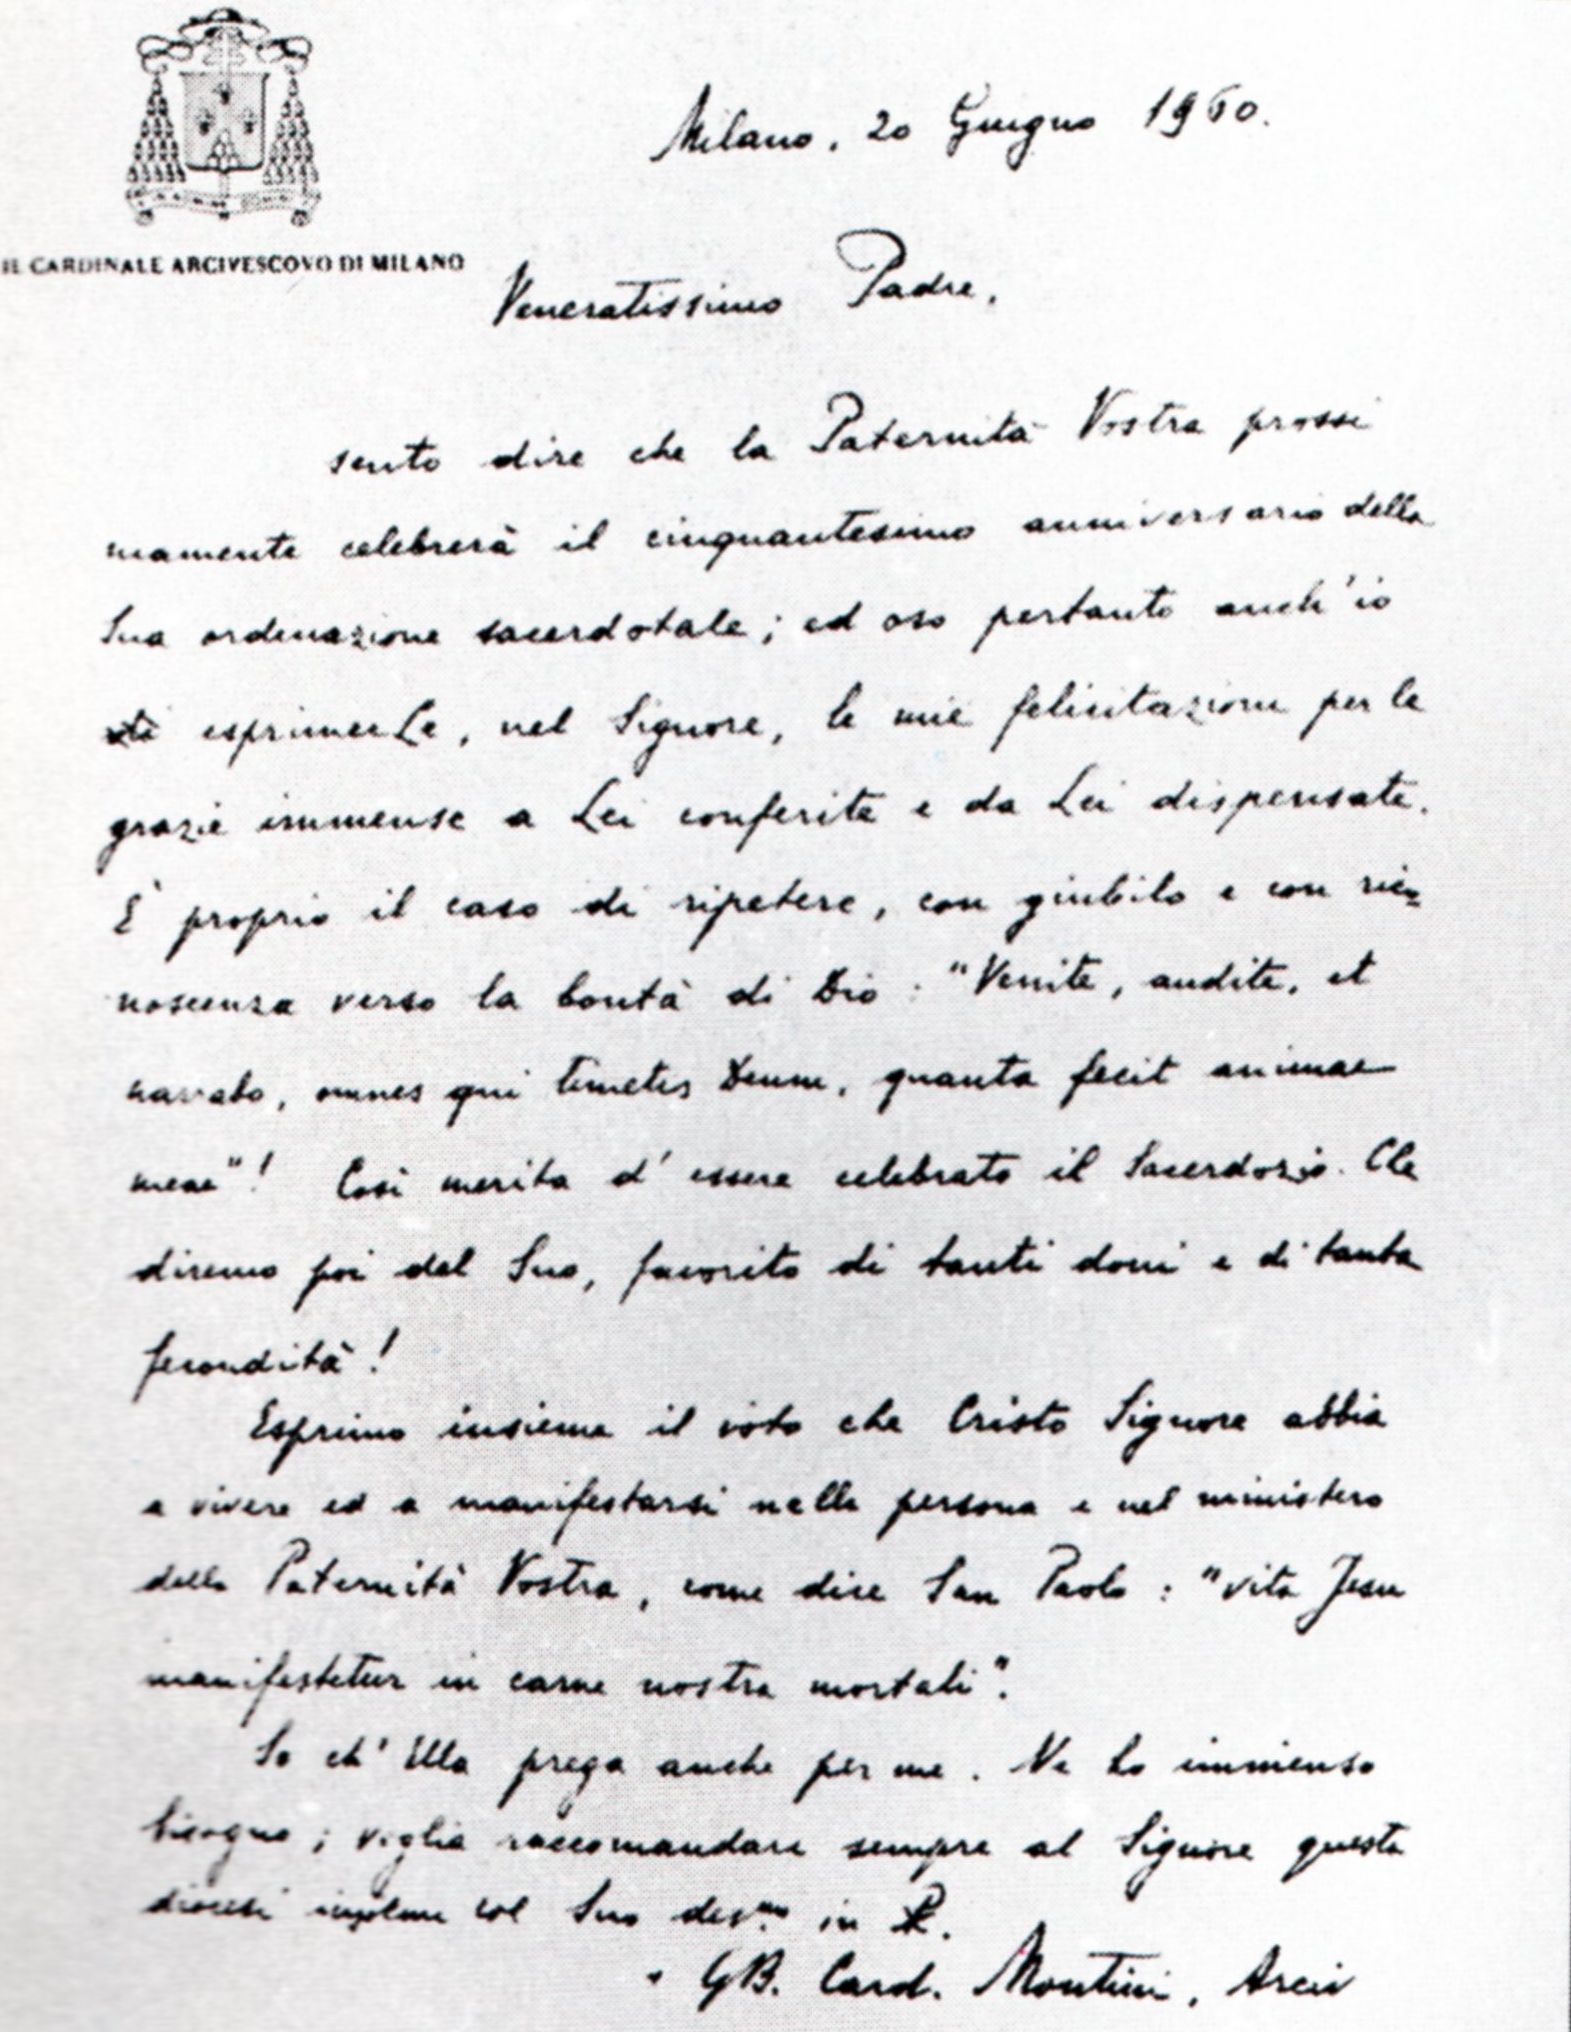 IL CARDINALE ARCIVESCOVO DI MILANO
Milano, 20 Giugno 1960.
Veneratissimo Padre,
sento dire che la Paternità Vostra prossi
mamente celebrerà il cinquantesimo anniversario della
Sua ordinazione sacerdotale; ed oso pertanto anch'io
esprimerLe, nel Signore, le mie felicitazioni per le
grazie immense a Lei conferite e da Lei dispensate.
È proprio il caso di ripetere, con giubilo e con rico-
noscenza verso la bontà di Dio: "Venite, audite, et
narrabo, omnes qui timetis Deum, quanta fecit animae
meae"! Così merita d'essere celebrato il Sacerdozio. Che
diremo poi del Suo, favorito di tanti doni e di tanta
fecondità!
Esprimo insieme il voto che Cristo Signore abbia
a vivere ed a manifestarsi nella persona e nel ministero
della Paternità Vostra, come dice San Paolo: "vita Jesu
manifestetur in carne nostra mortali".
So ch'Ella prega anche per me. Ne ho immenso
bisogno; voglia raccomandare sempre al Signore questa
diocesi insieme col Suo dev.mo in
GB. Card. Montini, Arciv